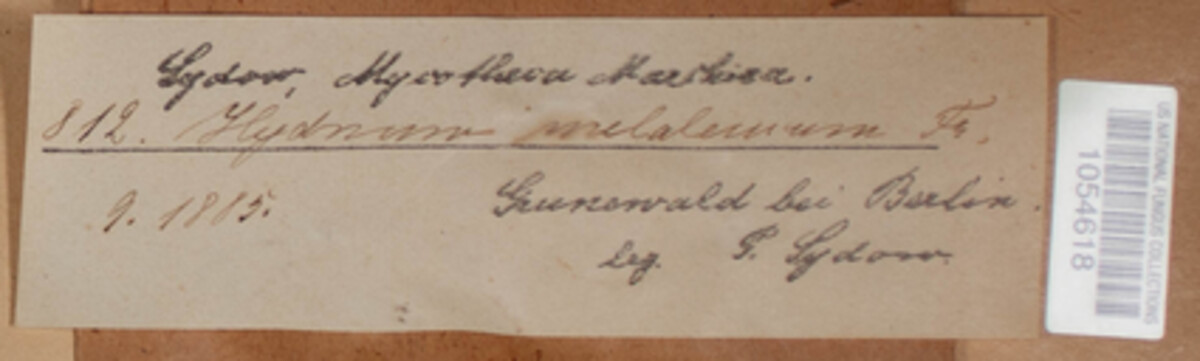 Sydow, Mycotheca Marchica.
812. Hydnum melaleucum Fr.
9. 1885.
Grunewald bei Berlin.
leg. P. Sydow.
US NATIONAL FUNGUS COLLECTIONS
1054618